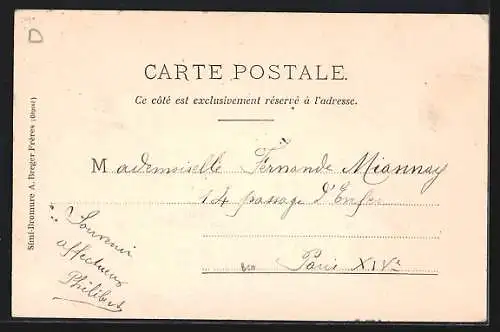 D
CARTE POSTALE.
Ce côté est exclusivement réservé à l'adresse.
Mademoiselle Fernande Miannay
14 passage D'Enfer
Paris XIVe
Souvenir
affectueux
Philibert
Simi-Bromure A. Breger Frères (Déposé)